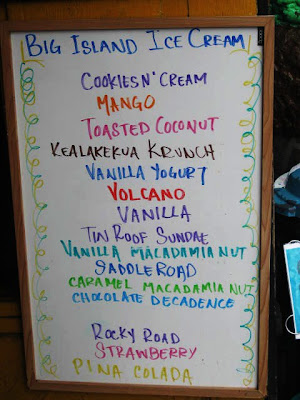 BIG ISLAND ICE CREAM
COOKIES N' CREAM
MANGO
TOASTED COCONUT
KEALAKEKUA KRUNCH
VANILLA YOGURT
VOLCANO
VANILLA
TIN ROOF SUNDAE
VANILLA MACADAMIA NUT
SADDLE ROAD
CARAMEL MACADAMIA NUT
CHOCOLATE DECADENCE
ROCKY ROAD
STRAWBERRY
PINA COLADA